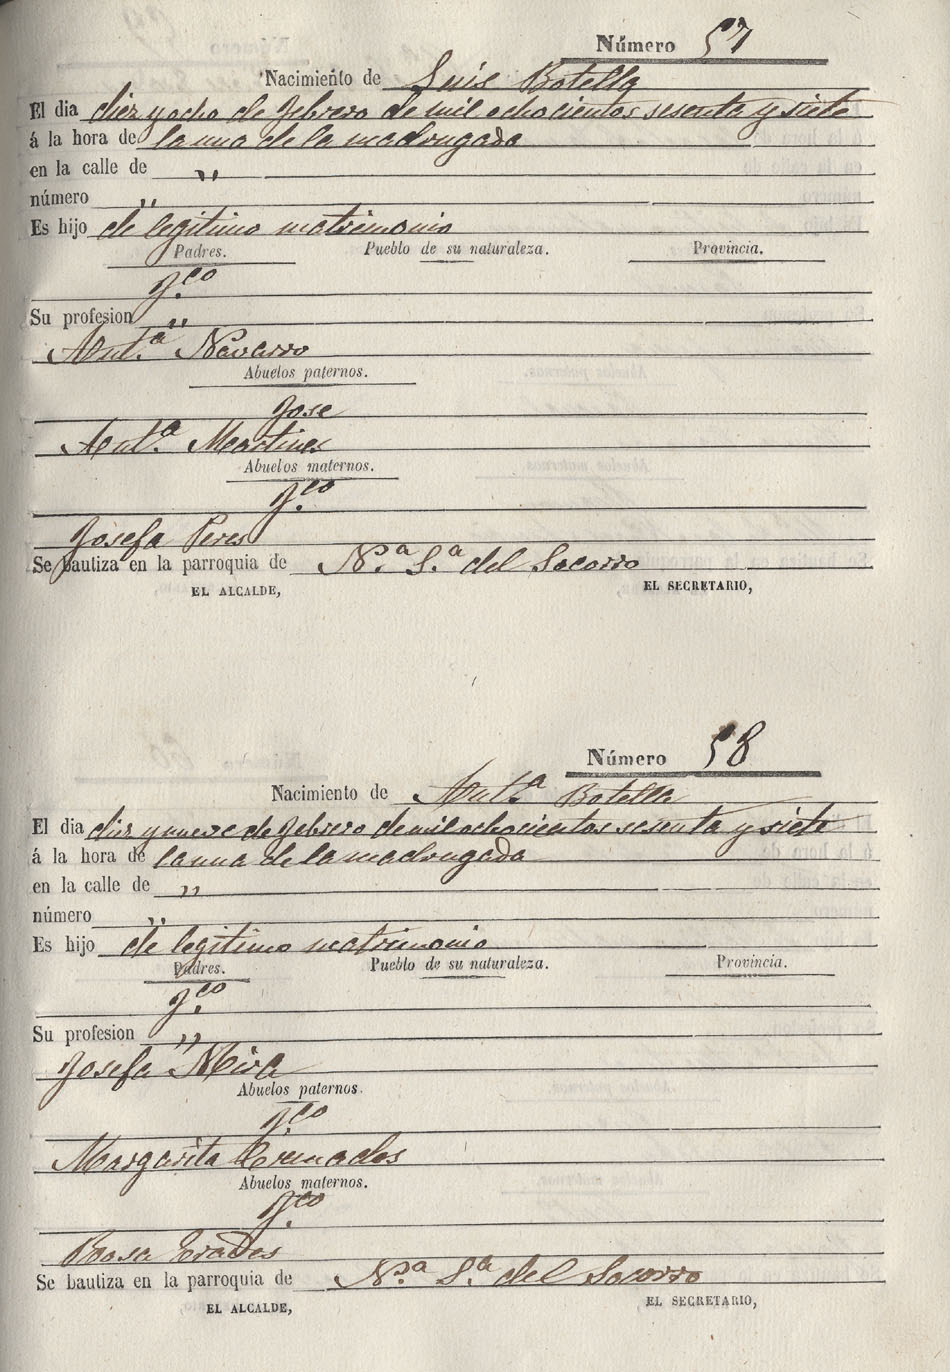 Número 57
Nacimiento de Luis Botella
El dia diez y ocho de febrero de mil ochocientos sesenta y siete
á la hora de la una de la madrugada
en la calle de „
número „
Es hijo de legitimo matrimonio
Padres. Pueblo de su naturaleza. Provincia.
F.co
Su profesion „
Ant.a Navarro
Abuelos paternos.
Jose
Ant.a Martines
Abuelos maternos.
F.co
Josefa Peres
Se bautiza en la parroquia de N.a S.a del Socorro
EL ALCALDE, EL SECRETARIO,
Número 58
Nacimiento de Ant.a Botella
El dia diez y nueve de febrero de mil ochocientos sesenta y siete
á la hora de la una de la madrugada
en la calle de „
número „
Es hijo de legitimo matrimonio
Padres. Pueblo de su naturaleza. Provincia.
F.co
Su profesion „
Josefa Mira
Abuelos paternos.
F.co
Margarita
Abuelos maternos.
F.co
Rosa
Se bautiza en la parroquia de N.a S.a del Socorro
EL ALCALDE, EL SECRETARIO,